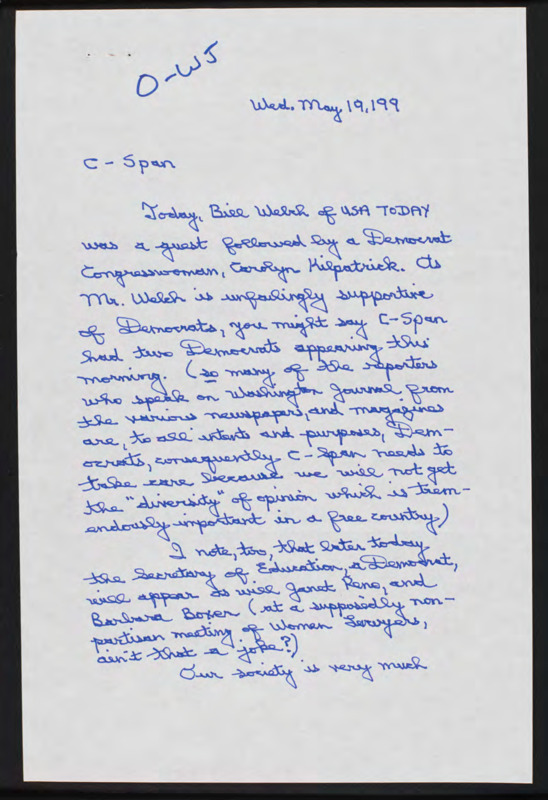 O-WJ
Wed. May, 19, 199
C-Span
Today, Bill Welch of USA TODAY
was a guest followed by a Democrat
Congresswoman, Carolyn Kilpatrick. As
Mr. Welch is unfailingly supportive
of Democrats, you might say C-Span
had two Democrats appearing this
morning. (so many of the reporters
who speak on Washington Journal, from
the various newspapers, and magazines
are, to all intents and purposes, Dem-
ocrats, consequently C-Span needs to
take care because we will not get
the "diversity" of opinion which is trem-
endously important in a free country.)
I note, too, that later today
the Secretary of Education, a Democrat,
will appear as will Janet Reno, and
Barbara Boxer (at a supposedly non-
partisan meeting of Women Lawyers,
ain't that a joke?)
Our society is very much